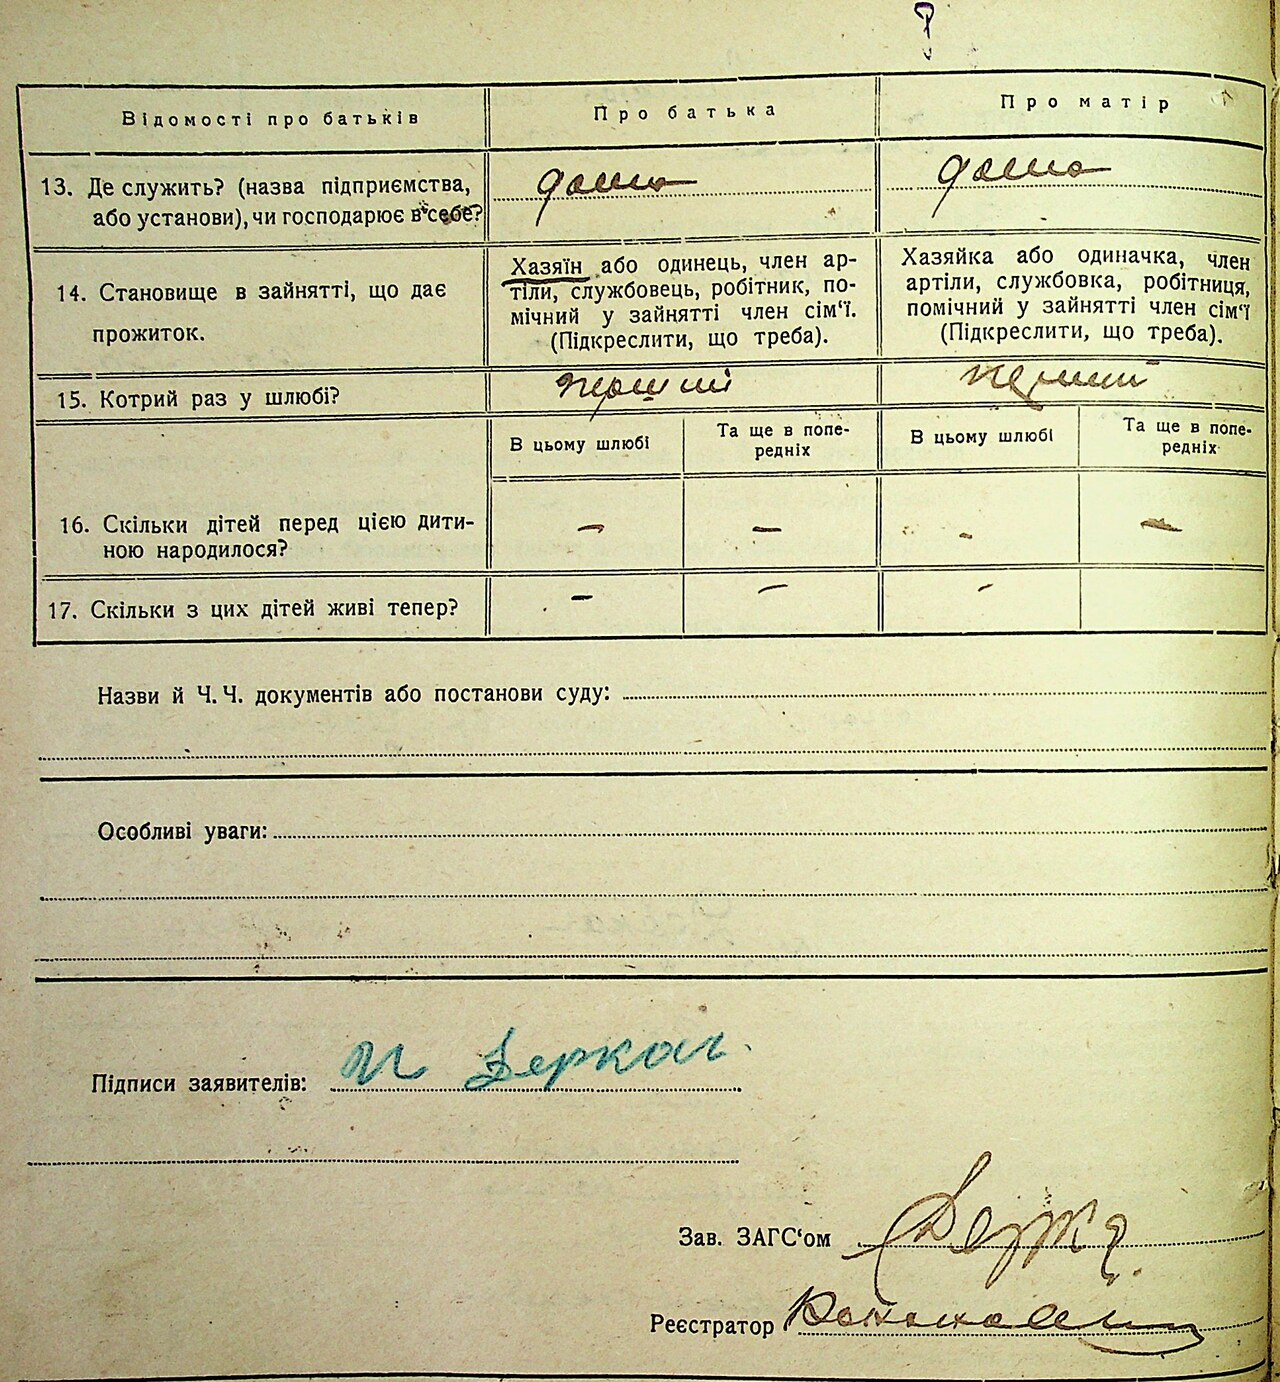 Відомості про батьків
Про батька
Про матір
13. Де служить? (назва підприємства,
або установи), чи господарює в себе?
дома
дома
14. Становище в зайнятті, що дає
прожиток.
Хазяїн або одинець, член ар-
тіли, службовець, робітник, по-
мічний у зайнятті член сім‘ї.
(Підкреслити, що треба).
Хазяйка або одиначка, член
артіли, службовка, робітниця,
помічний у зайнятті член сім‘ї
(Підкреслити, що треба).
15. Котрий раз у шлюбі?
перший
В цьому шлюбі
Та ще в попе-
редніх
В цьому шлюбі
Та ще в попе-
редніх
16. Скільки дітей перед цією дити-
ною народилося?
– – – –
17. Скільки з цих дітей живі тепер?
– – –
Назви й Ч. Ч. документів або постанови суду:
Особливі уваги:
Підписи заявителів: И Деркач
Зав. ЗАГС‘ом
Реєстратор